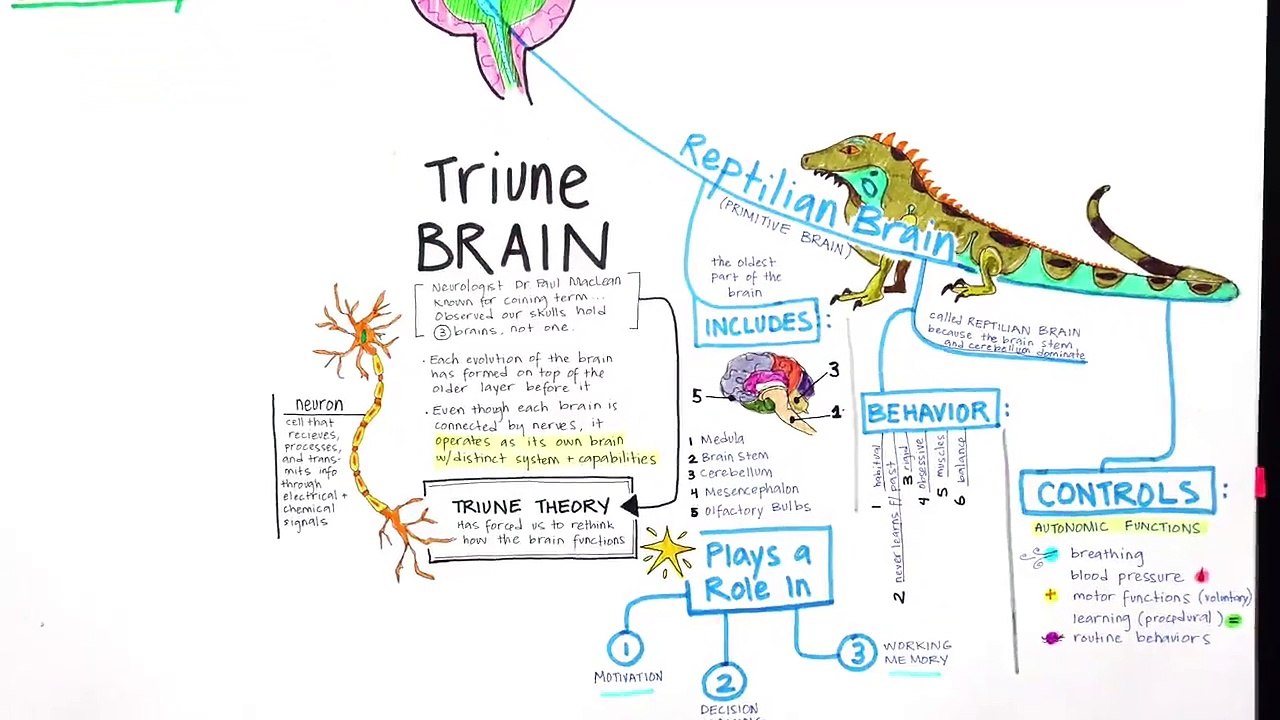 Triune
BRAIN
Neurologist Dr Paul MacLean
Known for coining term...
Observed our skulls hold
3 brains, not one.
• Each evolution of the brain
has formed on top of the
older layer before it
• Even though each brain is
connected by nerves, it
operates as its own brain
w/distinct system + capabilities
TRIUNE THEORY
Has forced us to rethink
how the brain functions
neuron
cell that
recieves,
processes,
and trans-
mits info
through
electrical +
chemical
signals
Reptilian Brain
(PRIMITIVE BRAIN)
the oldest
part of the
brain
INCLUDES:
3
5
1
1 Medula
2 Brain stem
3 Cerebellum
4 Mesencephalon
5 Olfactory Bulbs
called REPTILIAN BRAIN
because the brain stem
and cerebellum dominate
BEHAVIOR:
1 habitual
2 never learns f/ past
3 rigid
4 obsessive
5 muscles
6 balance
CONTROLS:
AUTONOMIC FUNCTIONS
breathing
blood pressure
+ motor functions (voluntary)
learning (procedural)
routine behaviors
Plays a
Role In
1
MOTIVATION
2
DECISION
3
WORKING
MEMORY